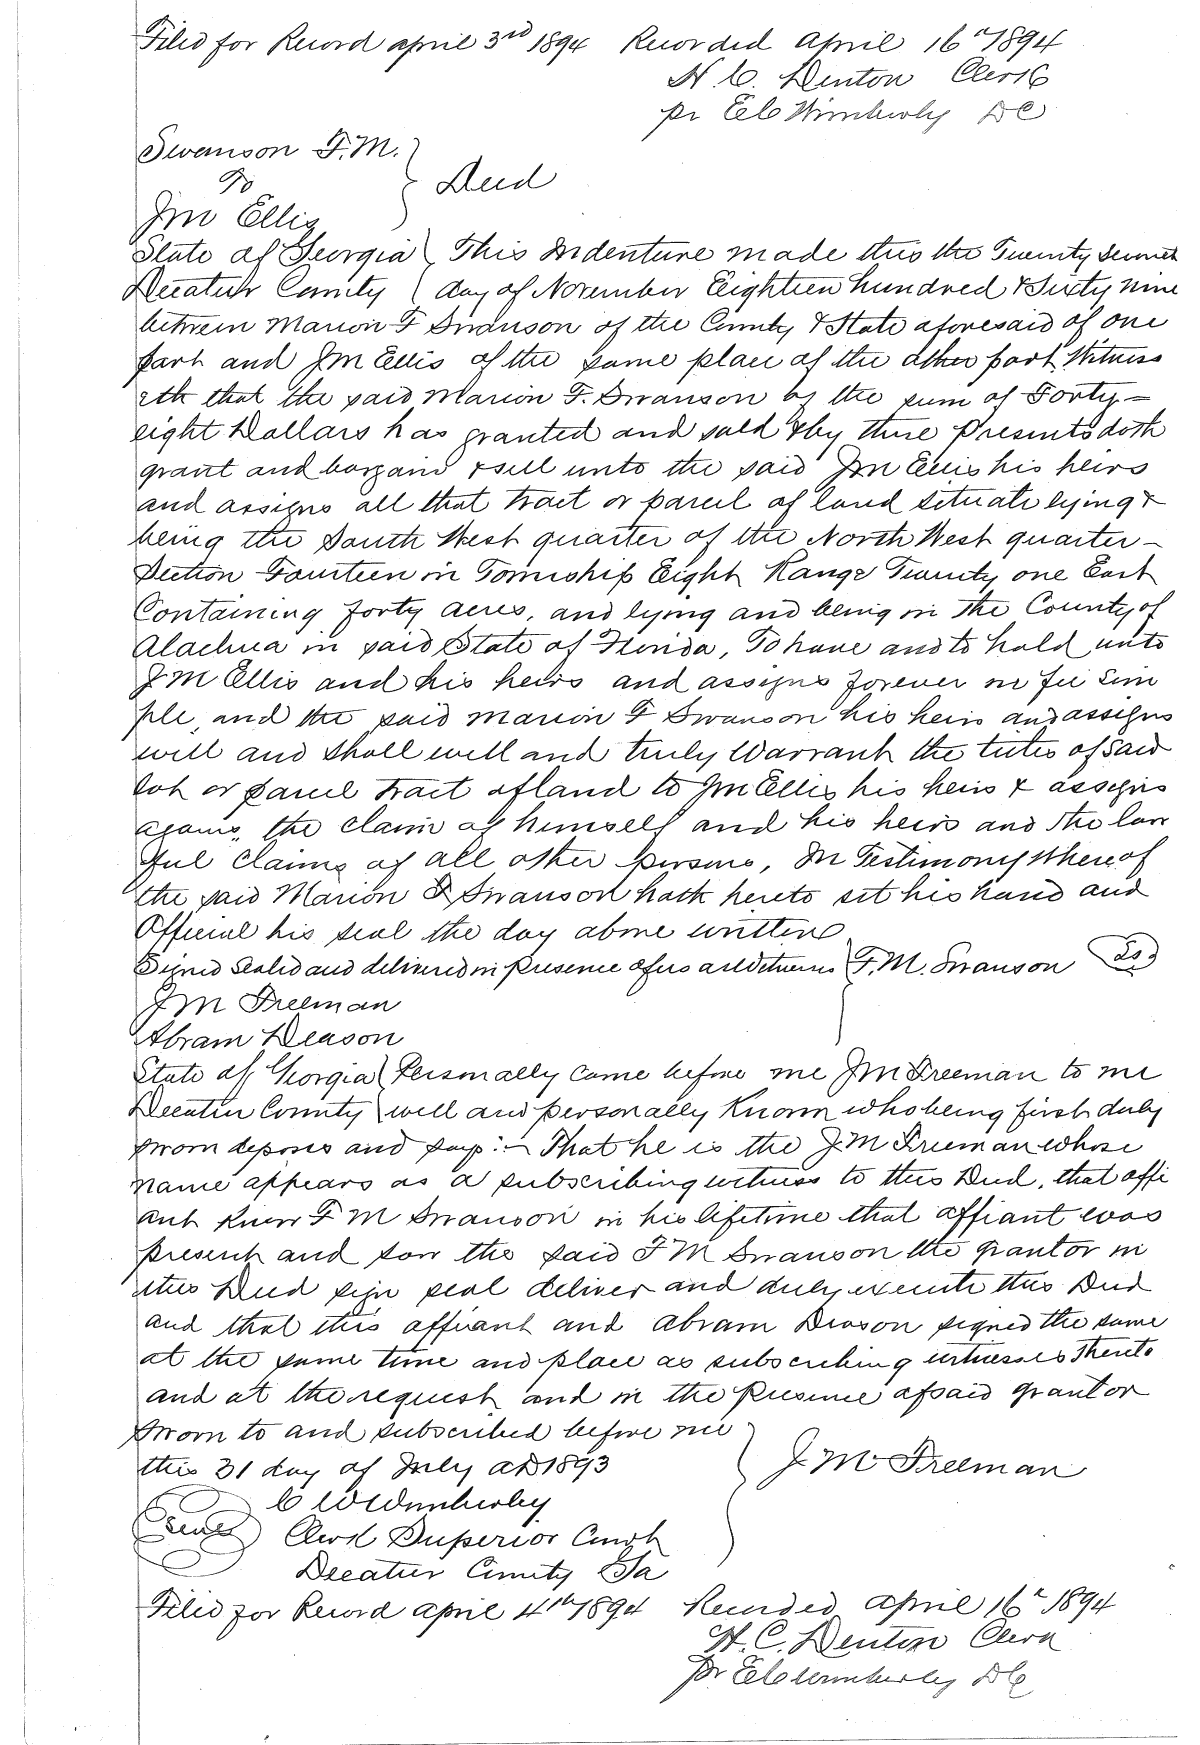 Filed for Record april 3rd 1894 Recorded april 16th 1894
H. C. Denton Clerk
pr E C Wimberly DC
Swanson F. M.
To
Deed
J M Ellis
State of Georgia This Indenture made this the Twenty Second
Decatur County day of November Eighteen hundred & Sixty nine
between Marion F Swanson of the County & State aforesaid of one
part and J M Ellis of the same place of the other part, Witness
eth that the said Marion F. Swanson by the sum of Forty-
eight Dollars has granted and sold & by these Presents doth
grant and bargain & sell unto the said J M Ellis his heirs
and assigns all that tract or parcel of land situate lying &
being the South West quarter of the North West quarter -
Section Fourteen in Township Eight Range Twenty one East
Containing forty acres, and lying and being in the County of
Alachua in said State of Florida, To have and to hold unto
J M Ellis and his heirs and assigns forever in fee Sim
ple, and the said Marion F Swanson his heirs and assigns
will and shall well and truly Warrant the titles of said
lot or parcel tract of land to J M Ellis his heirs & assigns
against the claim of himself and his heirs and the law
ful claims of all other persons, In Testimony Whereof
the said Marion F Swanson hath hereto set his hand and
Official his seal the day above written
Signed Sealed and delivered in presence of us as Witnesses F. M. Swanson LS
J M Freeman
Abram Deason
State of Georgia Personally came before me J M Freeman to me
Decatur County well and personally Known who being first duly
sworn deposes and says:- That he is the J M Freeman whose
name appears as a subscribing witness to this Deed, that affi
ant Knew F M Swanson in his lifetime that affiant was
present and saw the said F M Swanson the grantor in
this Deed sign seal deliver and duly execute this Deed
and that this affiant and Abram Deason signed the same
at the same time and place as subscribing witnesses thereto
and at the request and in the presence of said grantor
Sworn to and subscribed before me
this 31 day of July AD 1893
J. M Freeman
C W Wimberley
Seal Clerk Superior Court
Decatur County Ga
Filed for Record april 4th 1894 Recorded april 16th 1894
H. C. Denton Clerk
Pr E C Wimberley DC